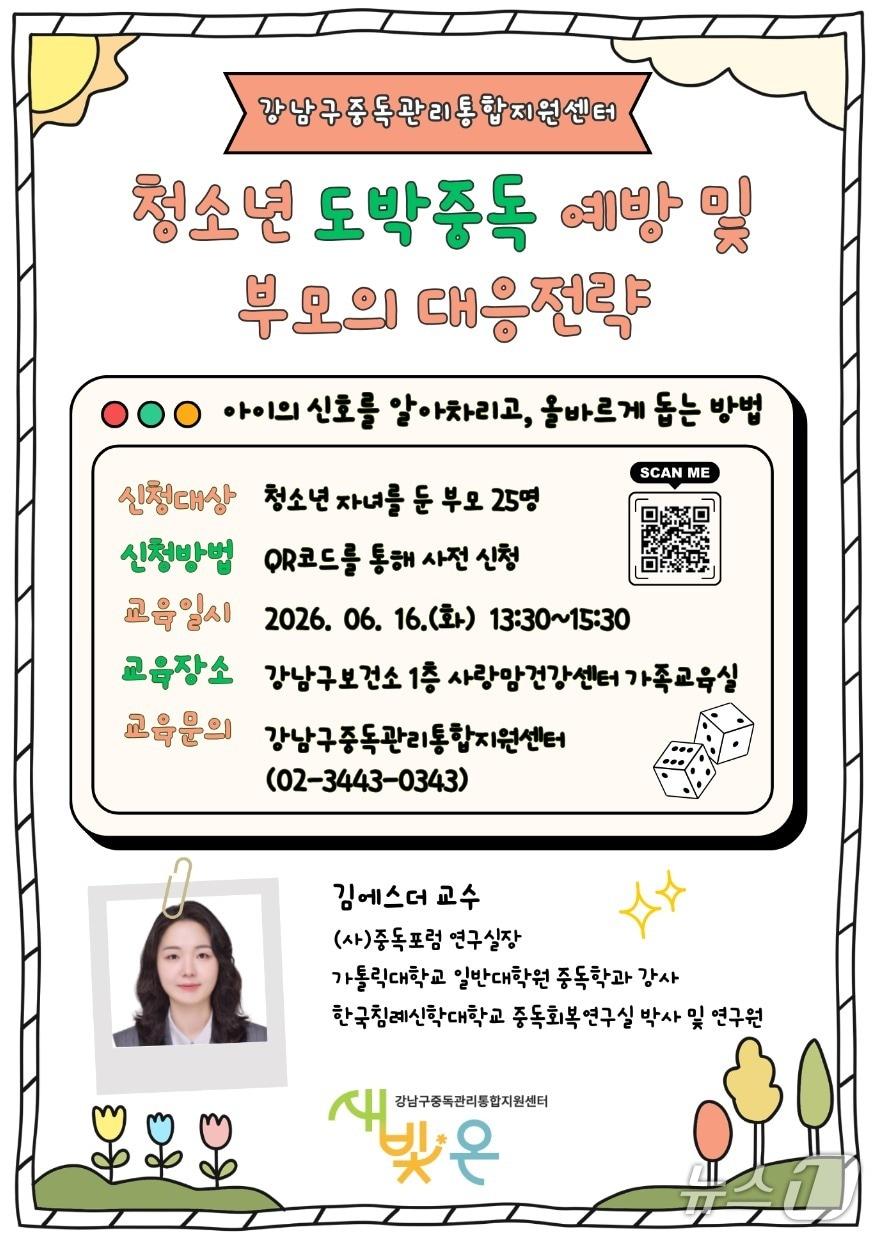 강남구중독관리통합지원센터
청소년 도박중독 예방 및
부모의 대응전략
아이의 신호를 알아차리고, 올바르게 돕는 방법
SCAN ME
신청대상 청소년 자녀를 둔 부모 25명
신청방법 QR코드를 통해 사전 신청
교육일시 2026. 06. 16.(화) 13:30~15:30
교육장소 강남구보건소 1층 사랑맘건강센터 가족교육실
교육문의 강남구중독관리통합지원센터
(02-3443-0343)
김에스더 교수
(사)중독포럼 연구실장
가톨릭대학교 일반대학원 중독학과 강사
한국침례신학대학교 중독회복연구실 박사 및 연구원
강남구중독관리통합지원센터
새빛온
뉴스1